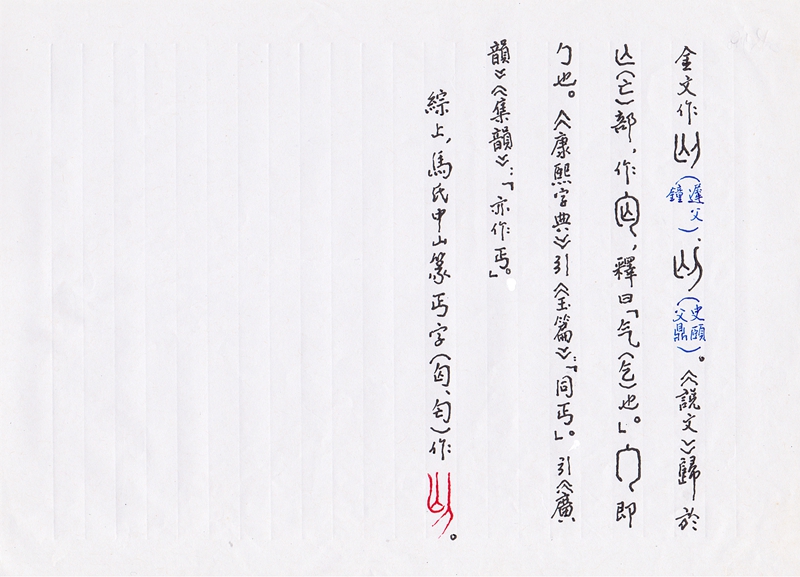 金文作（遲父鐘）、（史頤父鼎）。《說文》歸於
亾（亡）部，作，釋曰「气（乞）也。」即
勹也。《康熙字典》引《玉篇》：「同丐」。引《廣
韻》《集韻》：「亦作丐。」
綜上，馬氏中山篆丐字（匃、匄）作。